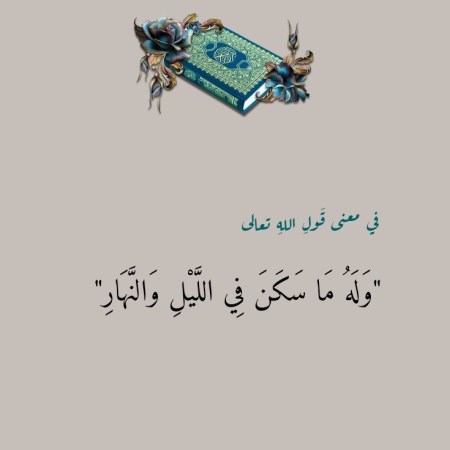 في معنى قَولِ اللهِ تعالى
"وَلَهُ مَا سَكَنَ فِي اللَّيْلِ وَالنَّهَارِ"